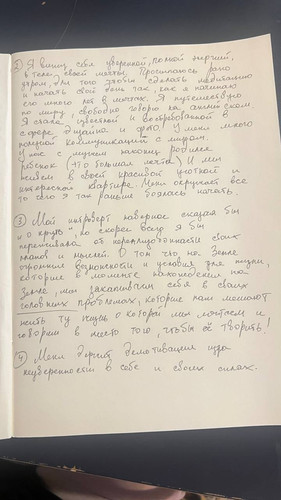 ② Я вижу себя уверенной, полной энергии,
в теле своей мечты. Просыпаюсь рано
утром, для того чтобы сделать медитацию
и начать свой день так, как я начинаю
его много лет в мечтах. Я путешествую
по миру, свободно говорю на английском.
Я стала известной и востребованной в
сфере дизайна и фото! У меня много
коммуникаций с людьми.
У нас с мужем наконец родился
ребенок (это большая мечта) И мы
живем в своей красивой уютной и
интересной квартире. Меня окружает все
то чего я так раньше боялась начать.
③ Мой интроверт наверное сказал бы
"о круто" но скорее всего я бы
переживала от переполненности своих
планов и мыслей. О том что на Земле
огромные возможности и условия для жизни,
которые в моменте нахождения на
Земле, мы закапываем себя в своих
головных проблемах, которые нам мешают
жить ту жизнь о которой мы мечтаем и
говорим в место того, чтобы её творить!
④ Меня держит демотивация из за
неуверенности в себе и своих силах.